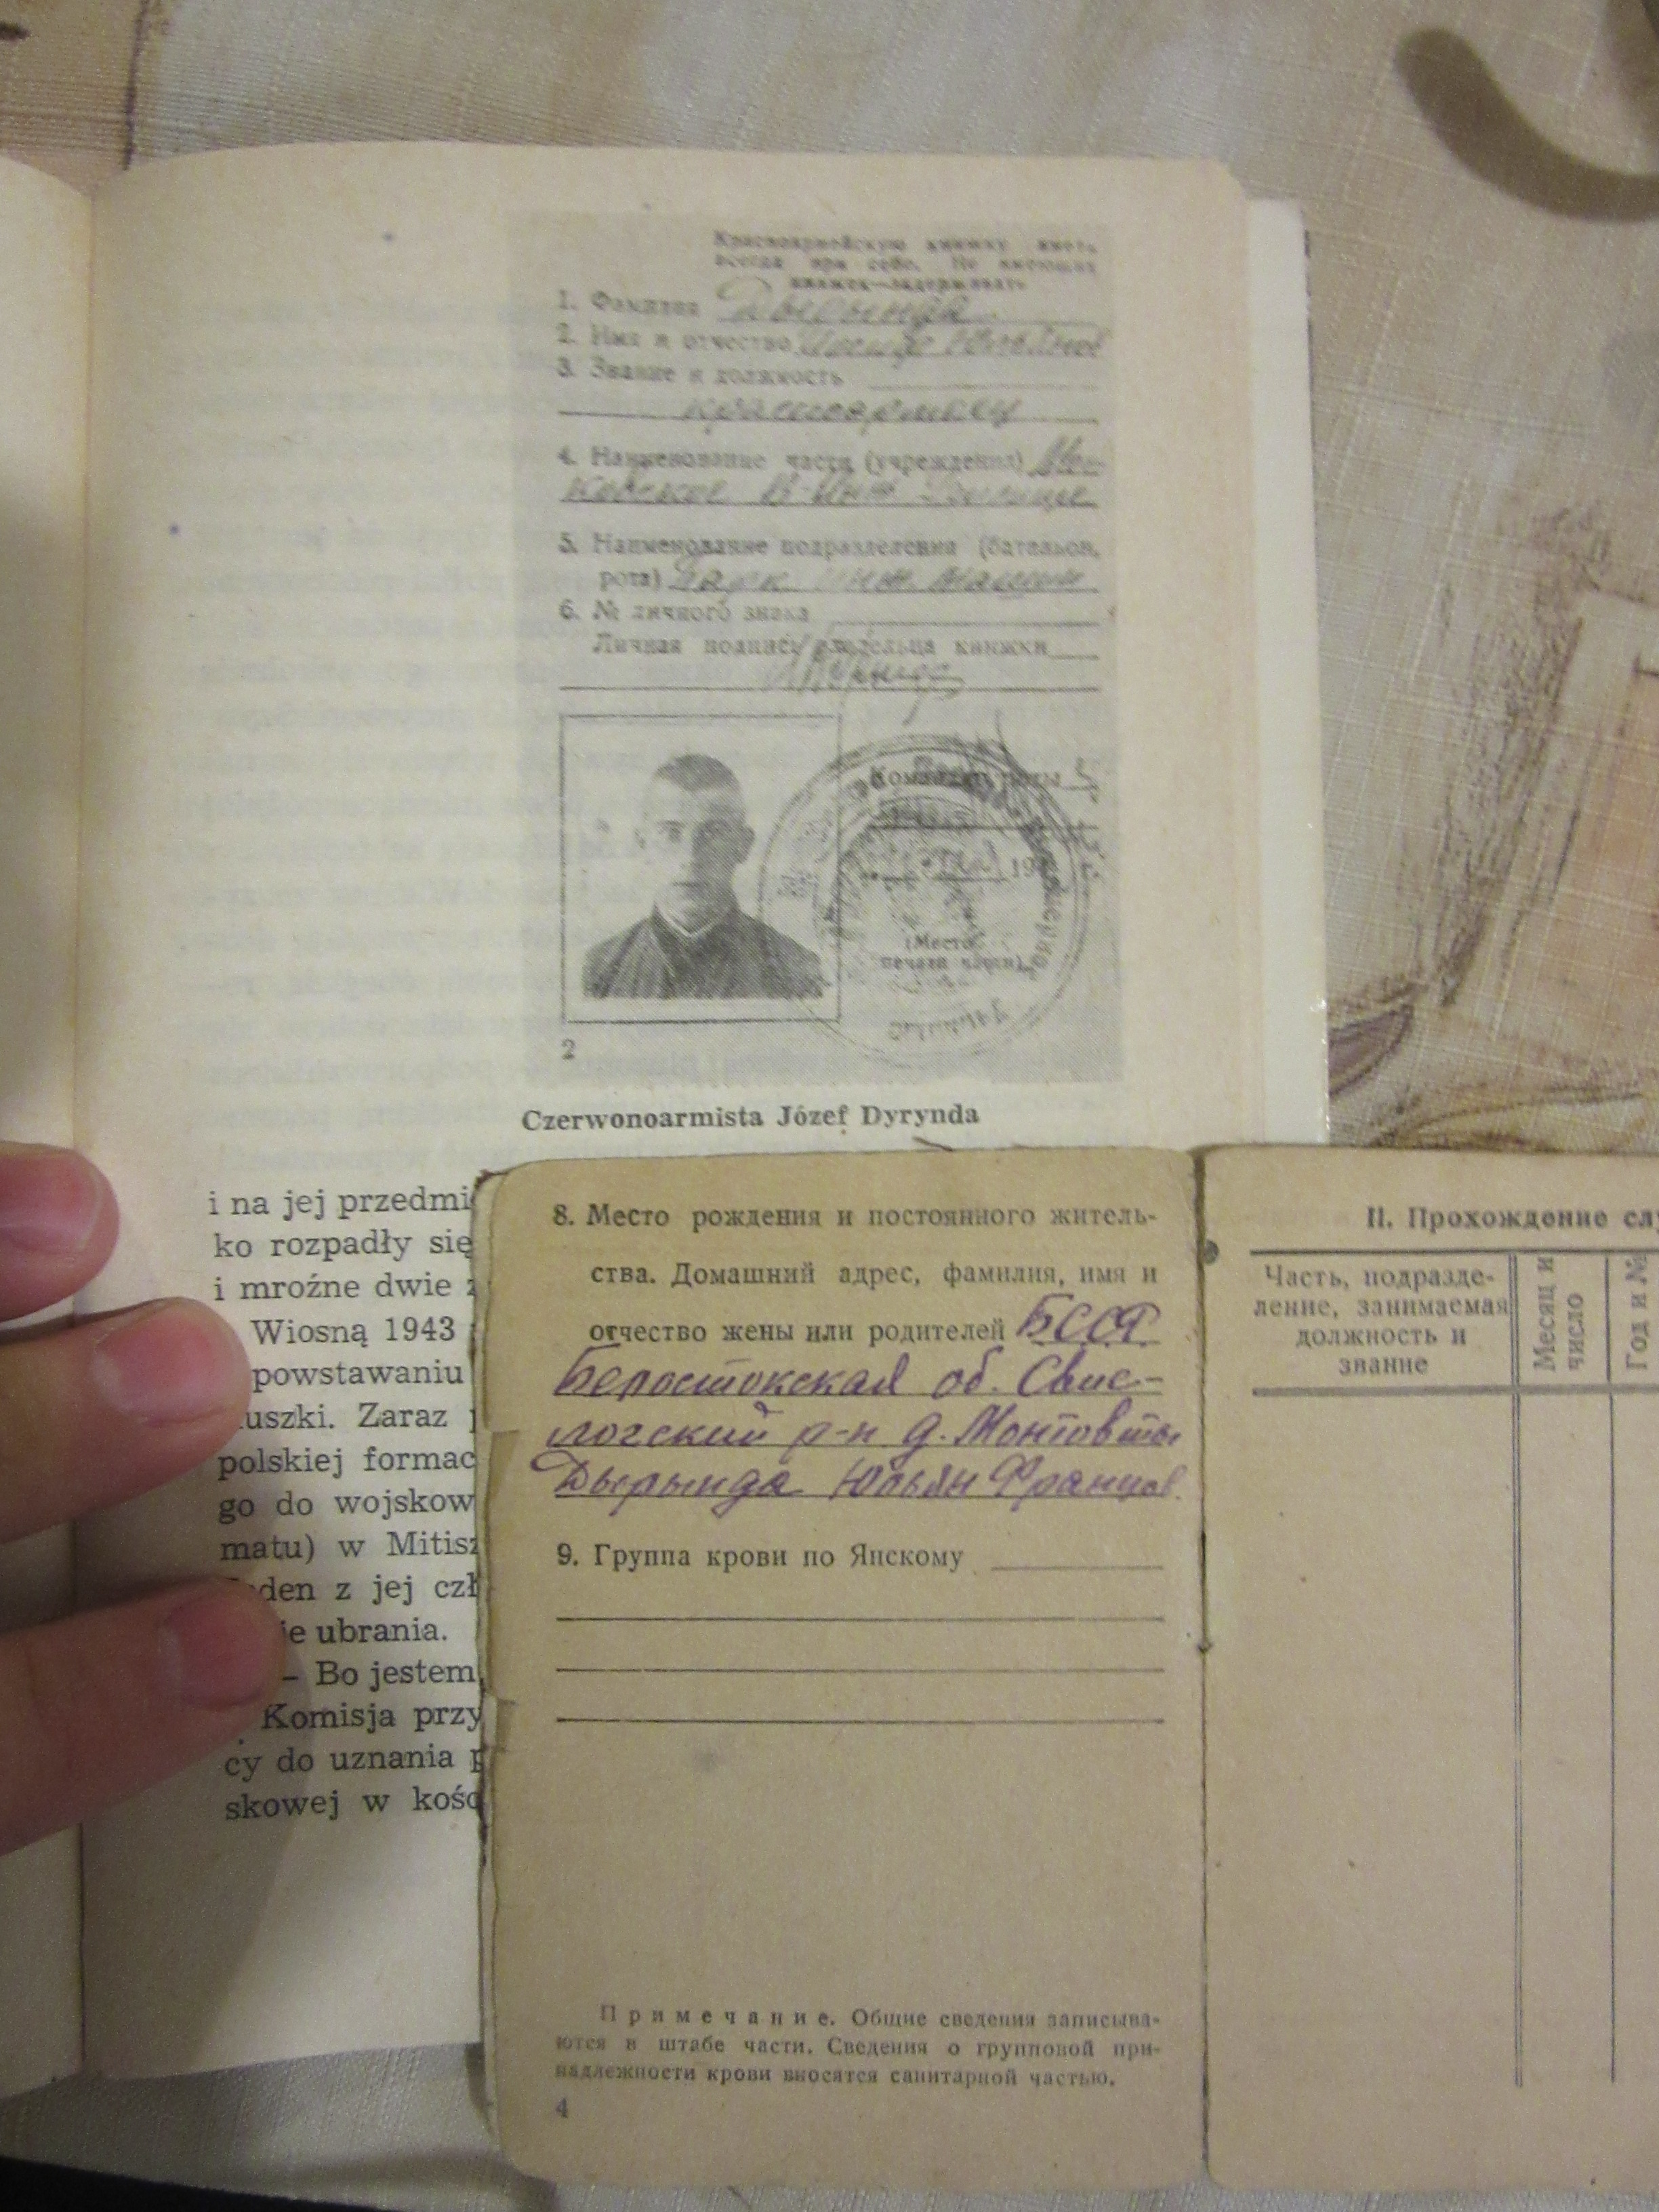 Красноармейскую книжку иметь
всегда при себе. Не имеющих
книжек—задерживать
1. Фамилия Дырында
2. Имя и отчество
3. Звание и должность
красноармеец
4. Наименование части (учреждения)
5. Наименование подразделения (батальон,
рота) Парк инж. машин
6. № личного знака
Личная подпись владельца книжки
Командир роты
19 г.
(Место
печати части)
2
Czerwonoarmista Józef Dyrynda
i na jej przedmi
ko rozpadły się
i mroźne dwie
Wiosną 1943
powstawaniu
uszki. Zaraz
polskiej formac
go do wojskow
matu) w Mitisz
eden z jej czł
je ubrania.
– Bo jestem
Komisja przy
cy do uznania
skowej w kość
8. Место рождения и постоянного житель-
ства. Домашний адрес, фамилия, имя и
отчество жены или родителей БССР
Белостокская об. Свис-
лочский р-н д. Монтовты
Дырында Юльян Францев
9. Группа крови по Янскому
Примечание. Общие сведения записыва-
ются в штабе части. Сведения о групповой при-
надлежности крови вносятся санитарной частью.
4
II. Прохождение слу
Часть, подразде-
ление, занимаемая
должность и
звание
Месяц и
число
Год и №